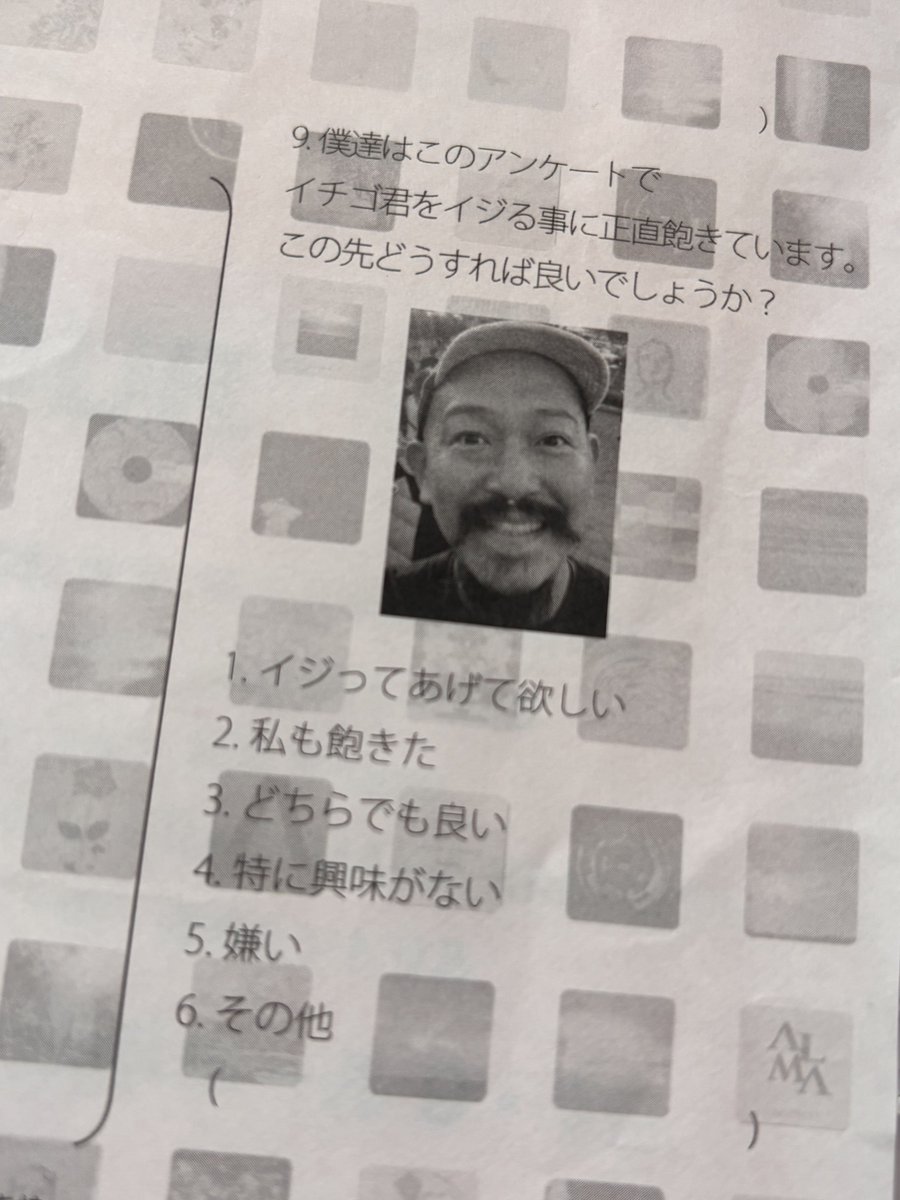 )
9. 僕達はこのアンケートで
イチゴ君をイジる事に正直飽きています。
この先どうすれば良いでしょうか？
1. イジってあげて欲しい
2. 私も飽きた
3. どちらでも良い
4. 特に興味がない
5. 嫌い
6. その他
(
)